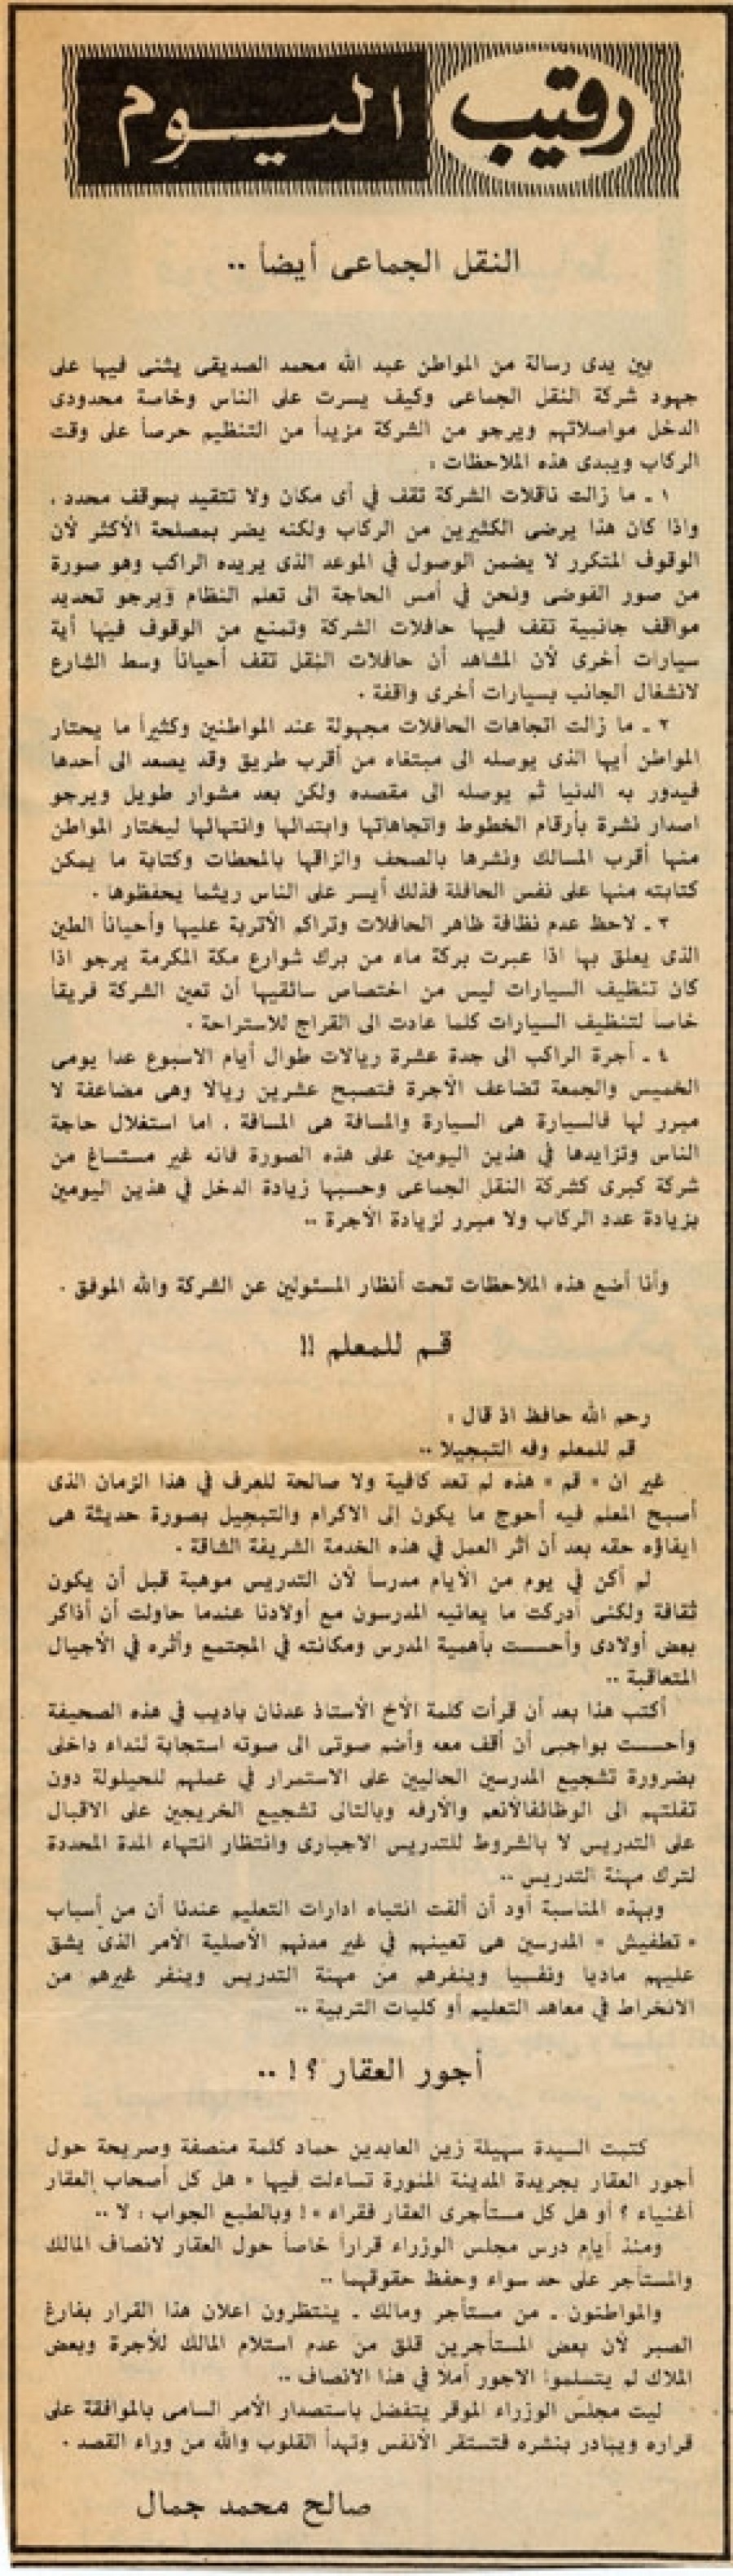 رقيب اليوم
النقل الجماعى أيضاً ..
بين يدى رسالة من المواطن عبد الله محمد الصديقى يثنى فيها على
جهود شركة النقل الجماعى وكيف يسرت على الناس وخاصة محدودى
الدخل مواصلاتهم ويرجو من الشركة مزيداً من التنظيم حرصاً على وقت
الركاب ويبدى هذه الملاحظات :
١ ـ ما زالت ناقلات الشركة تقف في أى مكان ولا تتقيد بموقف محدد .
واذا كان هذا يرضى الكثيرين من الركاب ولكنه يضر بمصلحة الأكثر لأن
الوقوف المتكرر لا يضمن الوصول في الموعد الذى يريده الراكب وهو صورة
من صور الفوضى ونحن في أمس الحاجة الى تعلم النظام ويرجو تحديد
مواقف جانبية تقف فيها حافلات الشركة وتمنع من الوقوف فيها أية
سيارات أخرى لأن المشاهد أن حافلات النقل تقف أحياناً وسط الشارع
لانشغال الجانب بسيارات أخرى واقفة .
٢ ـ ما زالت اتجاهات الحافلات مجهولة عند المواطنين وكثيراً ما يحتار
المواطن أيها الذى يوصله الى مبتغاه من أقرب طريق وقد يصعد الى أحدها
فيدور به الدنيا ثم يوصله الى مقصده ولكن بعد مشوار طويل ويرجو
اصدار نشرة بأرقام الخطوط واتجاهاتها وابتدائها وانتهائها ليختار المواطن
منها أقرب المسالك ونشرها بالصحف والزاقها بالمحطات وكتابة ما يمكن
كتابته منها على نفس الحافلة فذلك أيسر على الناس ريثما يحفظوها .
٣ ـ لاحظ عدم نظافة ظاهر الحافلات وتراكم الأتربة عليها وأحياناً الطين
الذى يعلق بها اذا عبرت بركة ماء من برك شوارع مكة المكرمة يرجو اذا
كان تنظيف السيارات ليس من اختصاص سائقيها أن تعين الشركة فريقاً
خاصاً لتنظيف السيارات كلما عادت الى القراج للاستراحة .
٤ ـ أجرة الراكب الى جدة عشرة ريالات طوال أيام الاسبوع عدا يومى
الخميس والجمعة تضاعف الأجرة فتصبح عشرين ريالا وهى مضاعفة لا
مبرر لها فالسيارة هى السيارة والمسافة هى المسافة . اما استغلال حاجة
الناس وتزايدها في هذين اليومين على هذه الصورة فانه غير مستساغ من
شركة كبرى كشركة النقل الجماعى وحسبها زيادة الدخل في هذين اليومين
بزيادة عدد الركاب ولا مبرر لزيادة الأجرة ..
وأنا أضع هذه الملاحظات تحت أنظار المسئولين عن الشركة والله الموفق .
قم للمعلم !!
رحم الله حافظ اذ قال :
قم للمعلم وفه التبجيلا ..
غير ان « قم » هذه لم تعد كافية ولا صالحة للعرف في هذا الزمان الذى
أصبح المعلم فيه أحوج ما يكون إلى الاكرام والتبجيل بصورة حديثة هى
ايفاؤه حقه بعد أن أثر العمل في هذه الخدمة الشريفة الشاقة .
لم أكن في يوم من الأيام مدرساً لأن التدريس موهبة قبل أن يكون
ثقافة ولكنى أدركت ما يعانيه المدرسون مع أولادنا عندما حاولت أن أذاكر
بعض أولادى وأحسست بأهمية المدرس ومكانته في المجتمع وأثره في الأجيال
المتعاقبة ..
أكتب هذا بعد أن قرأت كلمة الأخ الأستاذ عدنان باديب في هذه الصحيفة
وأحسست بواجبى أن أقف معه وأضم صوتى الى صوته استجابة لنداء داخلى
بضرورة تشجيع المدرسين الحاليين على الاستمرار في عملهم للحيلولة دون
تفلتهم الى الوظائفالأنعم والأرفه وبالتالى تشجيع الخريجين على الاقبال
على التدريس لا بالشروط للتدريس الاجبارى وانتظار انتهاء المدة المحددة
لترك مهنة التدريس ..
وبهذه المناسبة أود أن ألفت انتباه ادارات التعليم عندنا أن من أسباب
« تطفيش » المدرسين هى تعينهم في غير مدنهم الأصلية الأمر الذى يشق
عليهم ماديا ونفسيا وينفرهم من مهنة التدريس وينفر غيرهم من
الانخراط في معاهد التعليم أو كليات التربية ..
أجور العقار ؟! ..
كتبت السيدة سهيلة زين العابدين حماد كلمة منصفة وصريحة حول
أجور العقار بجريدة المدينة المنورة تساءلت فيها « هل كل أصحاب العقار
أغنياء ؟ أو هل كل مستأجرى العقار فقراء » ! وبالطبع الجواب : لا ..
ومنذ أيام درس مجلس الوزراء قراراً خاصاً حول العقار لانصاف المالك
والمستأجر على حد سواء وحفظ حقوقهما ..
والمواطنون ـ من مستأجر ومالك ـ ينتظرون اعلان هذا القرار بفارغ
الصبر لأن بعض المستأجرين قلق من عدم استلام المالك للأجرة وبعض
الملاك لم يتسلموا الاجور أملاً في هذا الانصاف ..
ليت مجلس الوزراء الموقر يتفضل باستصدار الأمر السامى بالموافقة على
قراره ويبادر بنشره فتستقر الأنفس وتهدأ القلوب والله من وراء القصد .
صالح محمد جمال